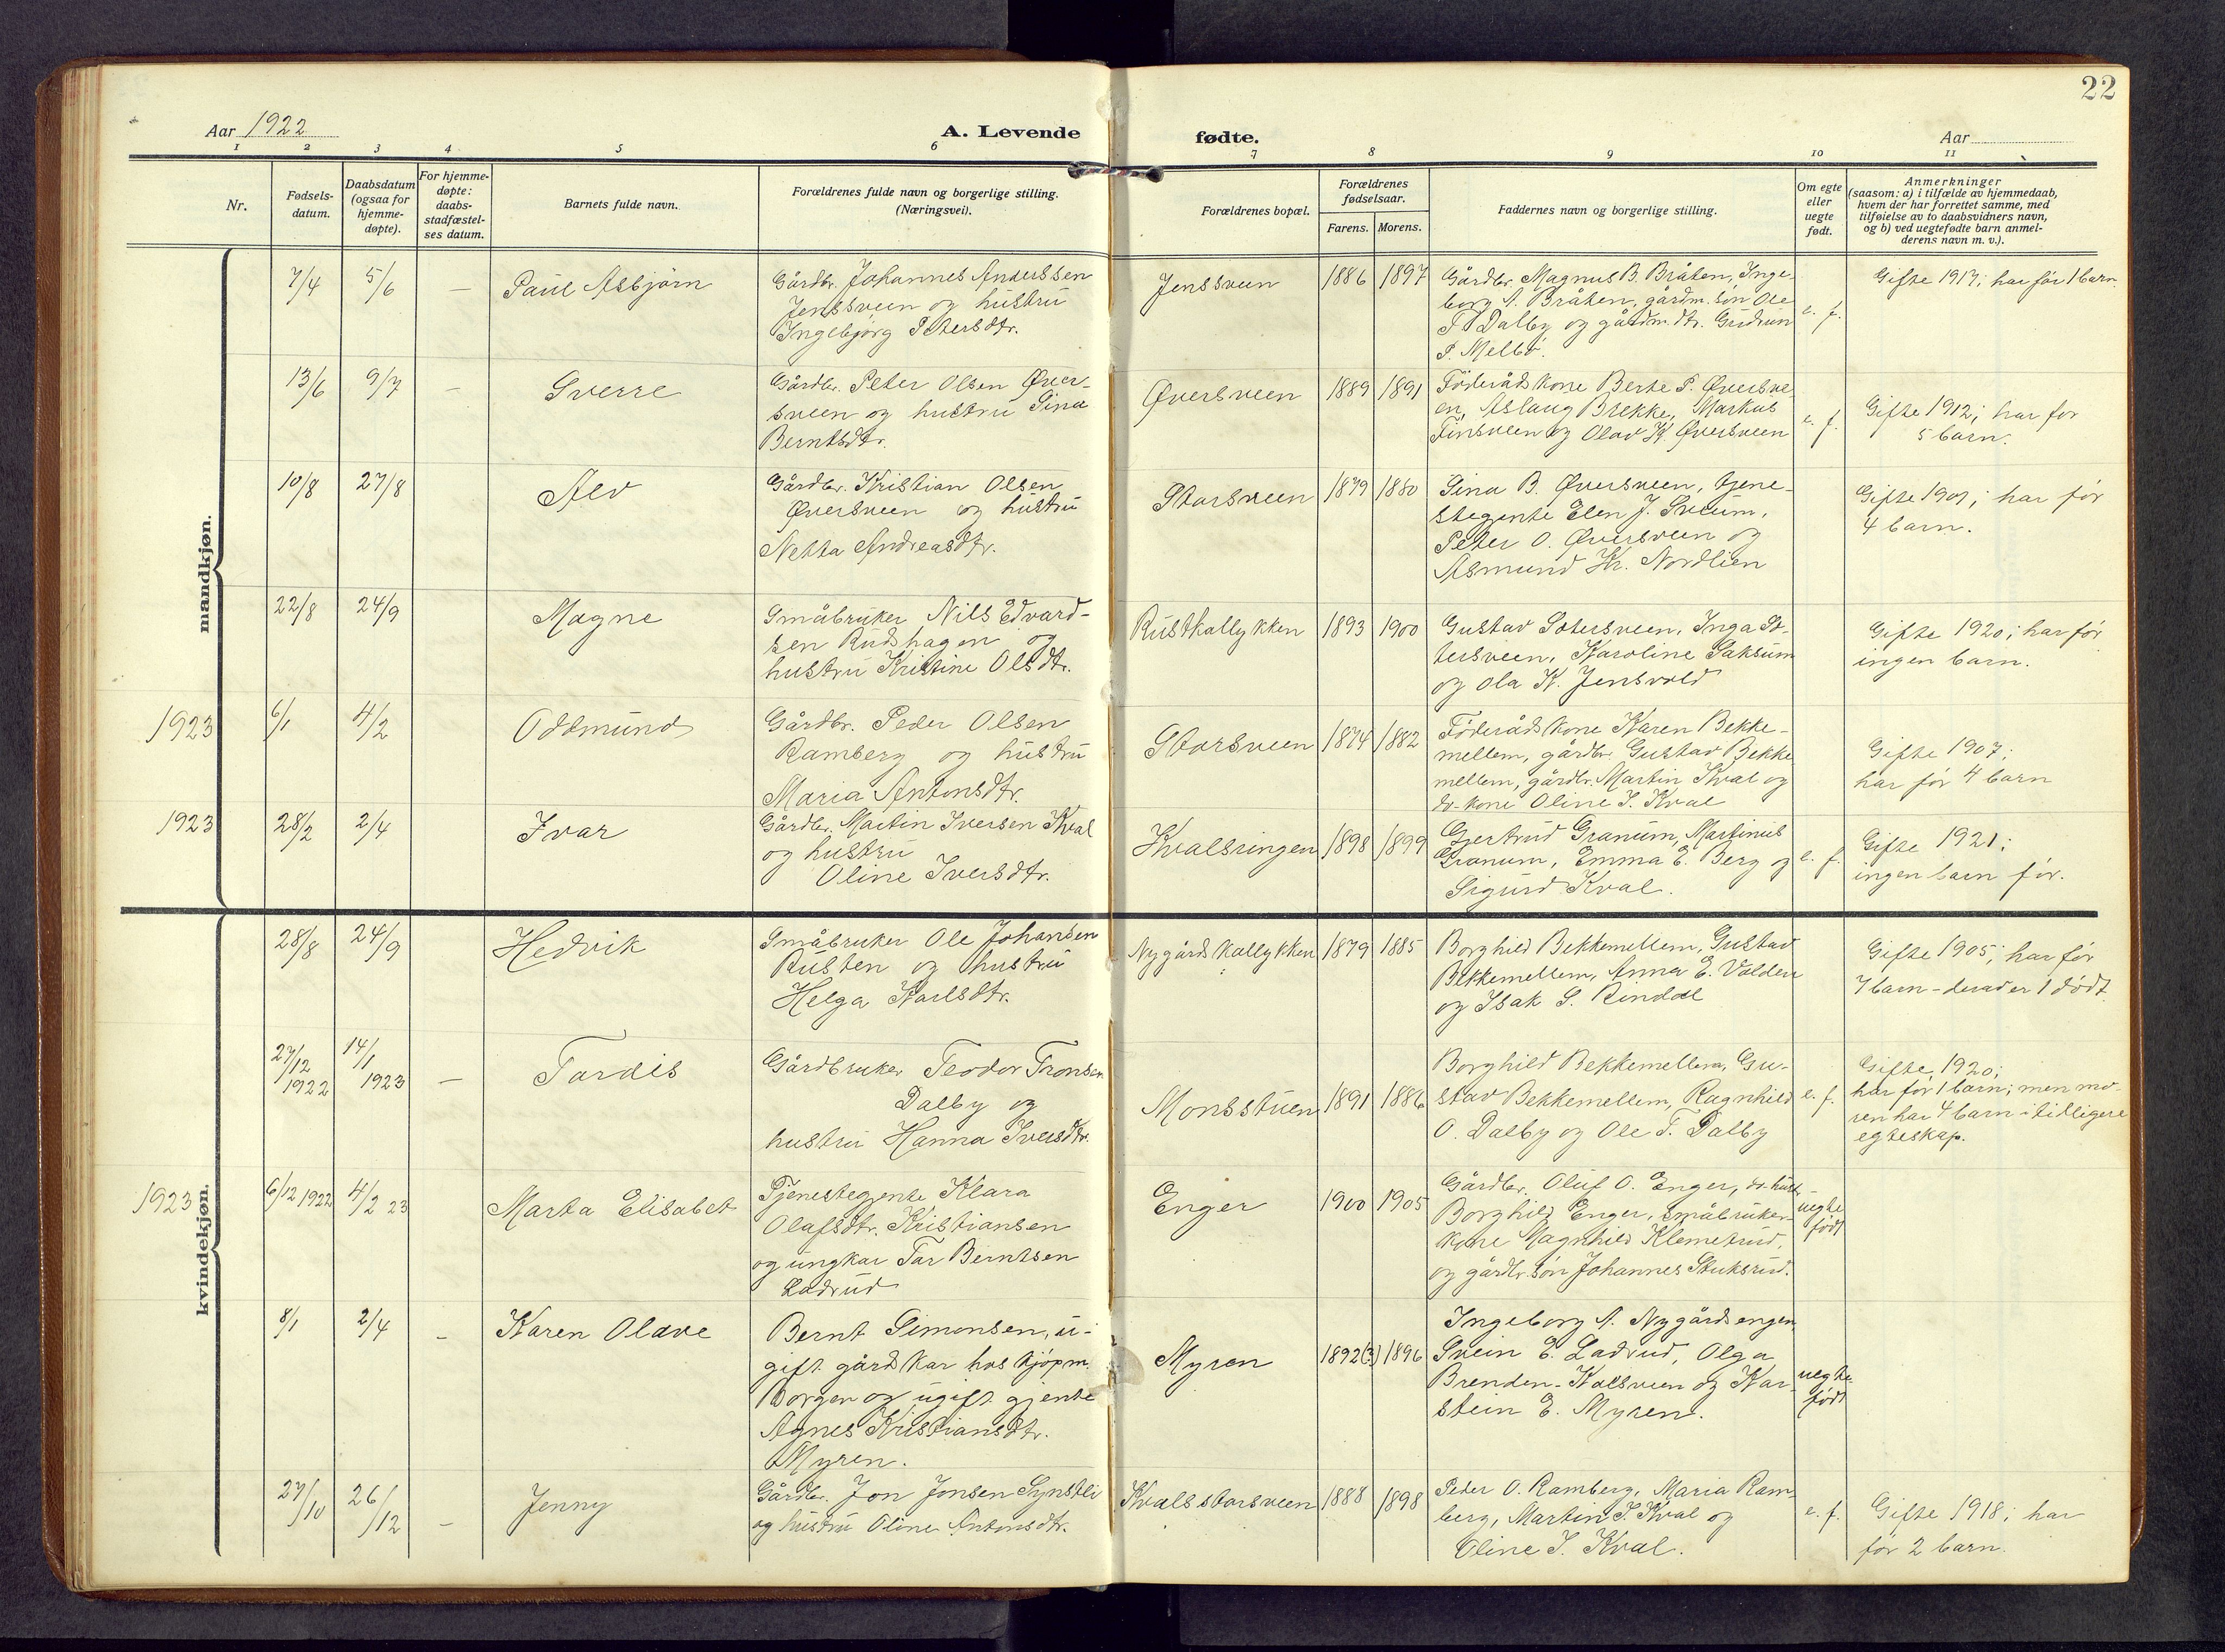 22
Aar 1922
A. Levende
fødte.
Aar
1 2 3 4 5 6 7 8 9 10 11
Nr.
Fødsels-
datum.
Daabsdatum
(ogsaa for
hjemme-
døpte).
For hjemme-
døpte:
daabs-
stadfæstel-
ses datum.
Barnets fulde navn.
Forældrenes fulde navn og borgerlige stilling.
(Næringsvei).
Forældrenes bopæl.
Forældrenes
fødselsaar.
Farens. Morens.
Faddernes navn og borgerlige stilling.
Om egte
eller
uegte
født.
Anmerkninger
(saasom: a) i tilfælde av hjemmedaab,
hvem der har forrettet samme, med
tilføielse av to daabsvidners navn,
og b) ved uegtefødte barn anmel-
derens navn m. v.).
mandkjøn.
7/4 5/6 — Paul Asbjørn
Gårdbr. Johannes Anderssen
Jenssveen og hustru
Ingebjørg Petersdtr.
Jenssveen 1886 1897
Gårdbr. Magnus B. Bråten, Inge-
borg A. Bråten, gårdm. søn Ole
T. Dalby og gårdm. dtr. Gudrun
P. Melbø.
e. f.
Gifte 1917; har før 1 barn.
13/6 9/7 — Sverre
Gårdbr. Peter Olsen Øver-
sveen og hustru Sina
Berntsdtr.
Øversveen 1889 1891
Føderådskone Berte P. Øversve-
en, Aslaug Brekke, Markus
Finsveen og Olav K. Øversveen
e. f.
Gifte 1912; har før
5 barn.
10/8 27/8 Alv
Gårdbr. Kristian Olsen
Øversveen og hustru
Netta Andreasdtr.
Storsveen 1879 1880
Sina B. Øversveen, tjene-
stegjente Elen J. Sveum,
Peter O. Øversveen og
Asmund Kr. Nordlien
Gifte 1907; har før
4 barn.
22/8 24/9 Magne
Småbruker Nils Edvard-
sen Rudshagen og
hustru Kristine Olsdtr.
Rustkallykken 1893 1900
Gustav Sotersveen, Inga So-
tersveen, Karoline Saksum
og Ola K. Jensvold
Gifte 1920; har før
ingen barn.
1923 6/1 4/2 Oddmund
Gårdbr. Peder Olsen
Ramberg og hustru
Maria Antonsdtr.
Storsveen 1874 1882
Føderådskone Karen Bekke-
mellem, gårdbr. Gustav Bekke-
mellem, gårdbr. Martin Kval og
do-kone Oline I. Kval
Gifte 1907;
har før 4 barn
1923 28/2 2/4 Ivar
Gårdbr. Martin Iversen Kval
og hustru
Oline Iversdtr.
Kvalsringen 1898 1899
Gjertrud Granum, Martinus
Granum, Emma E. Berg og
Sigurd Kval.
e. f.
Gifte 1921;
ingen barn før.
kvindekjøn.
28/8 24/9 Hedvik
Småbruker Ole Johansen
Rusten og hustru
Helga Karlsdtr.
Nygårdskallykken 1879 1885
Borghild Bekkemellem, Gustav
Bekkemellem, Anna E. Volden
og Isak S. Rindal
Gifte 1905; har før
7 barn – derav er 1 dødt.
27/12 1922 14/1 1923 — Tordis
Gårdbruker Teodor Tronsen
Dalby og
hustru Hanna Iversdtr.
Monsstuen 1891 1886
Borghild Bekkemellem, Gu-
stav Bekkemellem, Ragnhild
O. Dalby og Ole T. Dalby
e. f.
Gifte 1920;
har før 1 barn; men mo-
ren har 4 barn i tidligere
egteskap.
1923 6/12 1922 4/2 23 Marta Elisabet
Tjenestegjente Klara
Olafsdtr. Kristiansen
og ungkar Tor Berntsen
Ladrud
Enger 1900 1905
Gårdbr. Oluf O. Enger, do. hust.
Borghild Enger, småbruker-
kone Magnhild Klemetrud,
og gårdbr. søn Johannes Stuksrud.
uegte
født
8/1 2/4 — Karen Olave
Bernt Simonsen, u-
gift gårdskar hos kjøpm.
Borgen og ugift gjente
Agnes Kristiansdtr.
Myren.
Myren 1892(3) 1896
Ingeborg A. Nygårdsengen,
Svein E. Ladrud, Olga
Brenden-Kalsveen og Kar-
stein E. Myren.
uegte
født
27/10 26/12 — Jenny
Gårdbr. Jon Jonsen Synstli
og hustru Oline Antonsdtr.
Kvalsstorsveen 1888 1898
Peder O. Ramberg, Maria Ram-
berg, Martin I. Kval og
Oline I. Kval.
e. f.
Gifte 1918; har
før 2 barn.